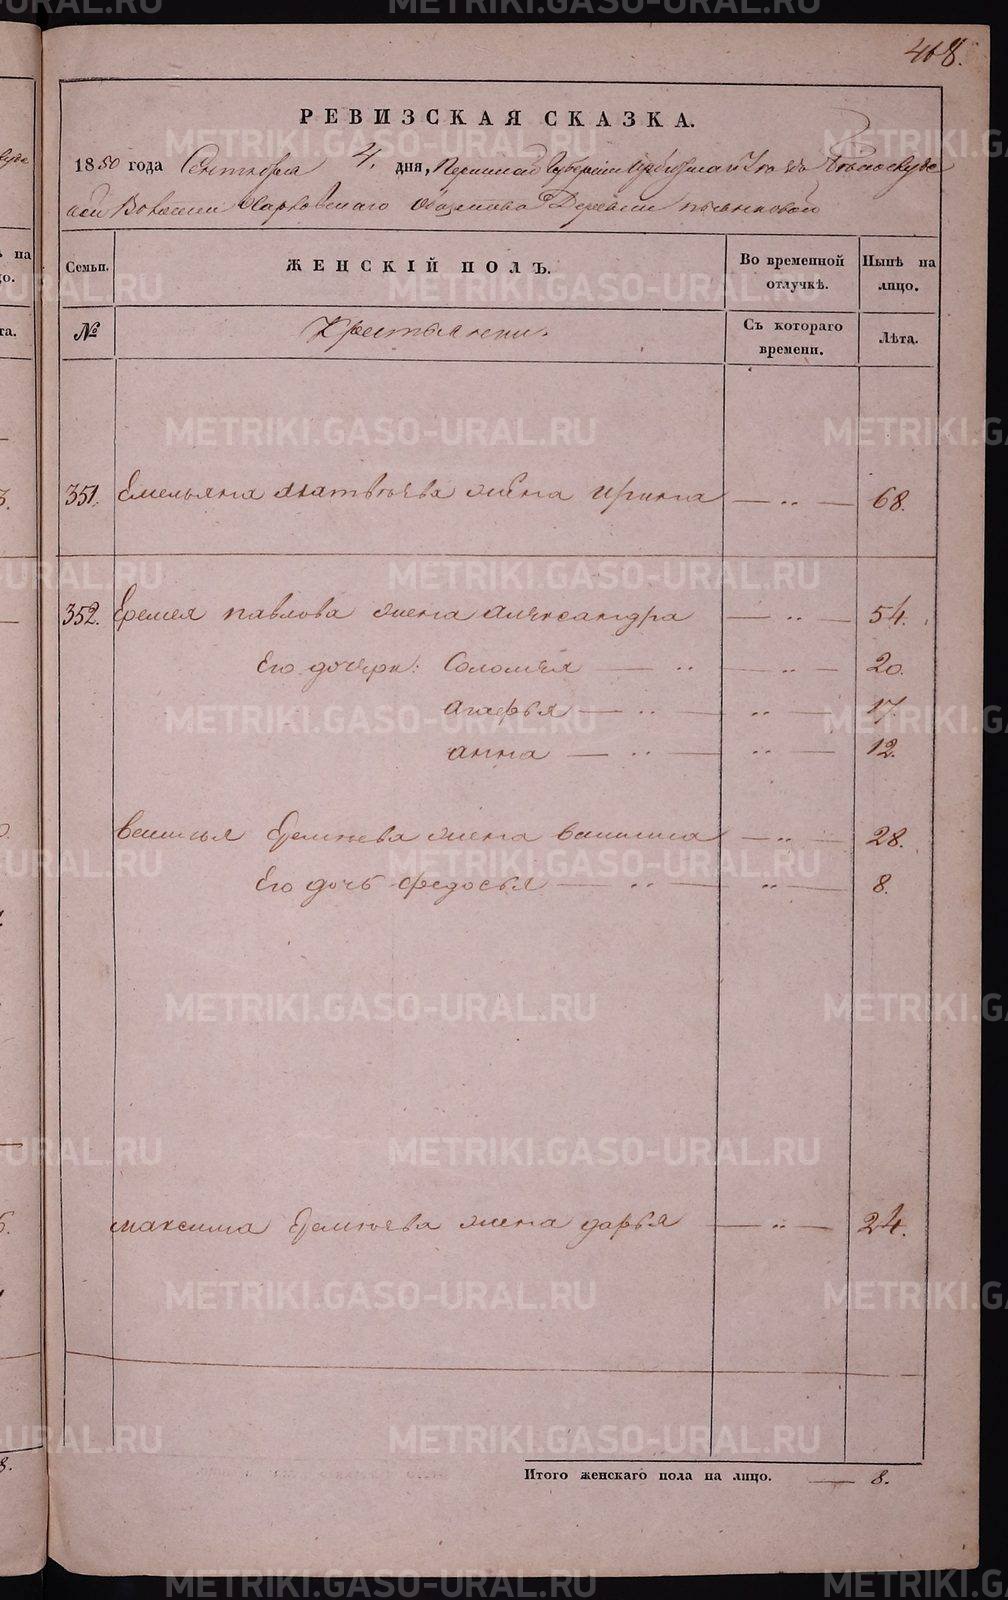 418.
РЕВИЗСКАЯ СКАЗКА.
1850 года Сентября 4. дня, Пермской Губернии Ирбитскаго Уезда
Волости Харловскаго Общества Деревни
Семьи. ЖЕНСКІЙ ПОЛЪ. Во временной отлучкѣ. Нынѣ на лицо.
№ Крестьяне. Съ котораго времени. Лѣта.
351. Емельяна Матвѣева жена Ирина — " — 68.
352. Еремея Павлова жена Александра — " — 54.
Его дочери: Соломея — " — " — 20.
Агафья — " — " — 17.
Анна — " — " — 12.
Василья Еремѣева жена Василиса — " — 28.
Его дочь Федосья — " — " — 8.
Максима Еремѣева жена Дарья — " — 24.
Итого женскаго пола на лицо. — 8.
METRIKI.GASO-URAL.RU